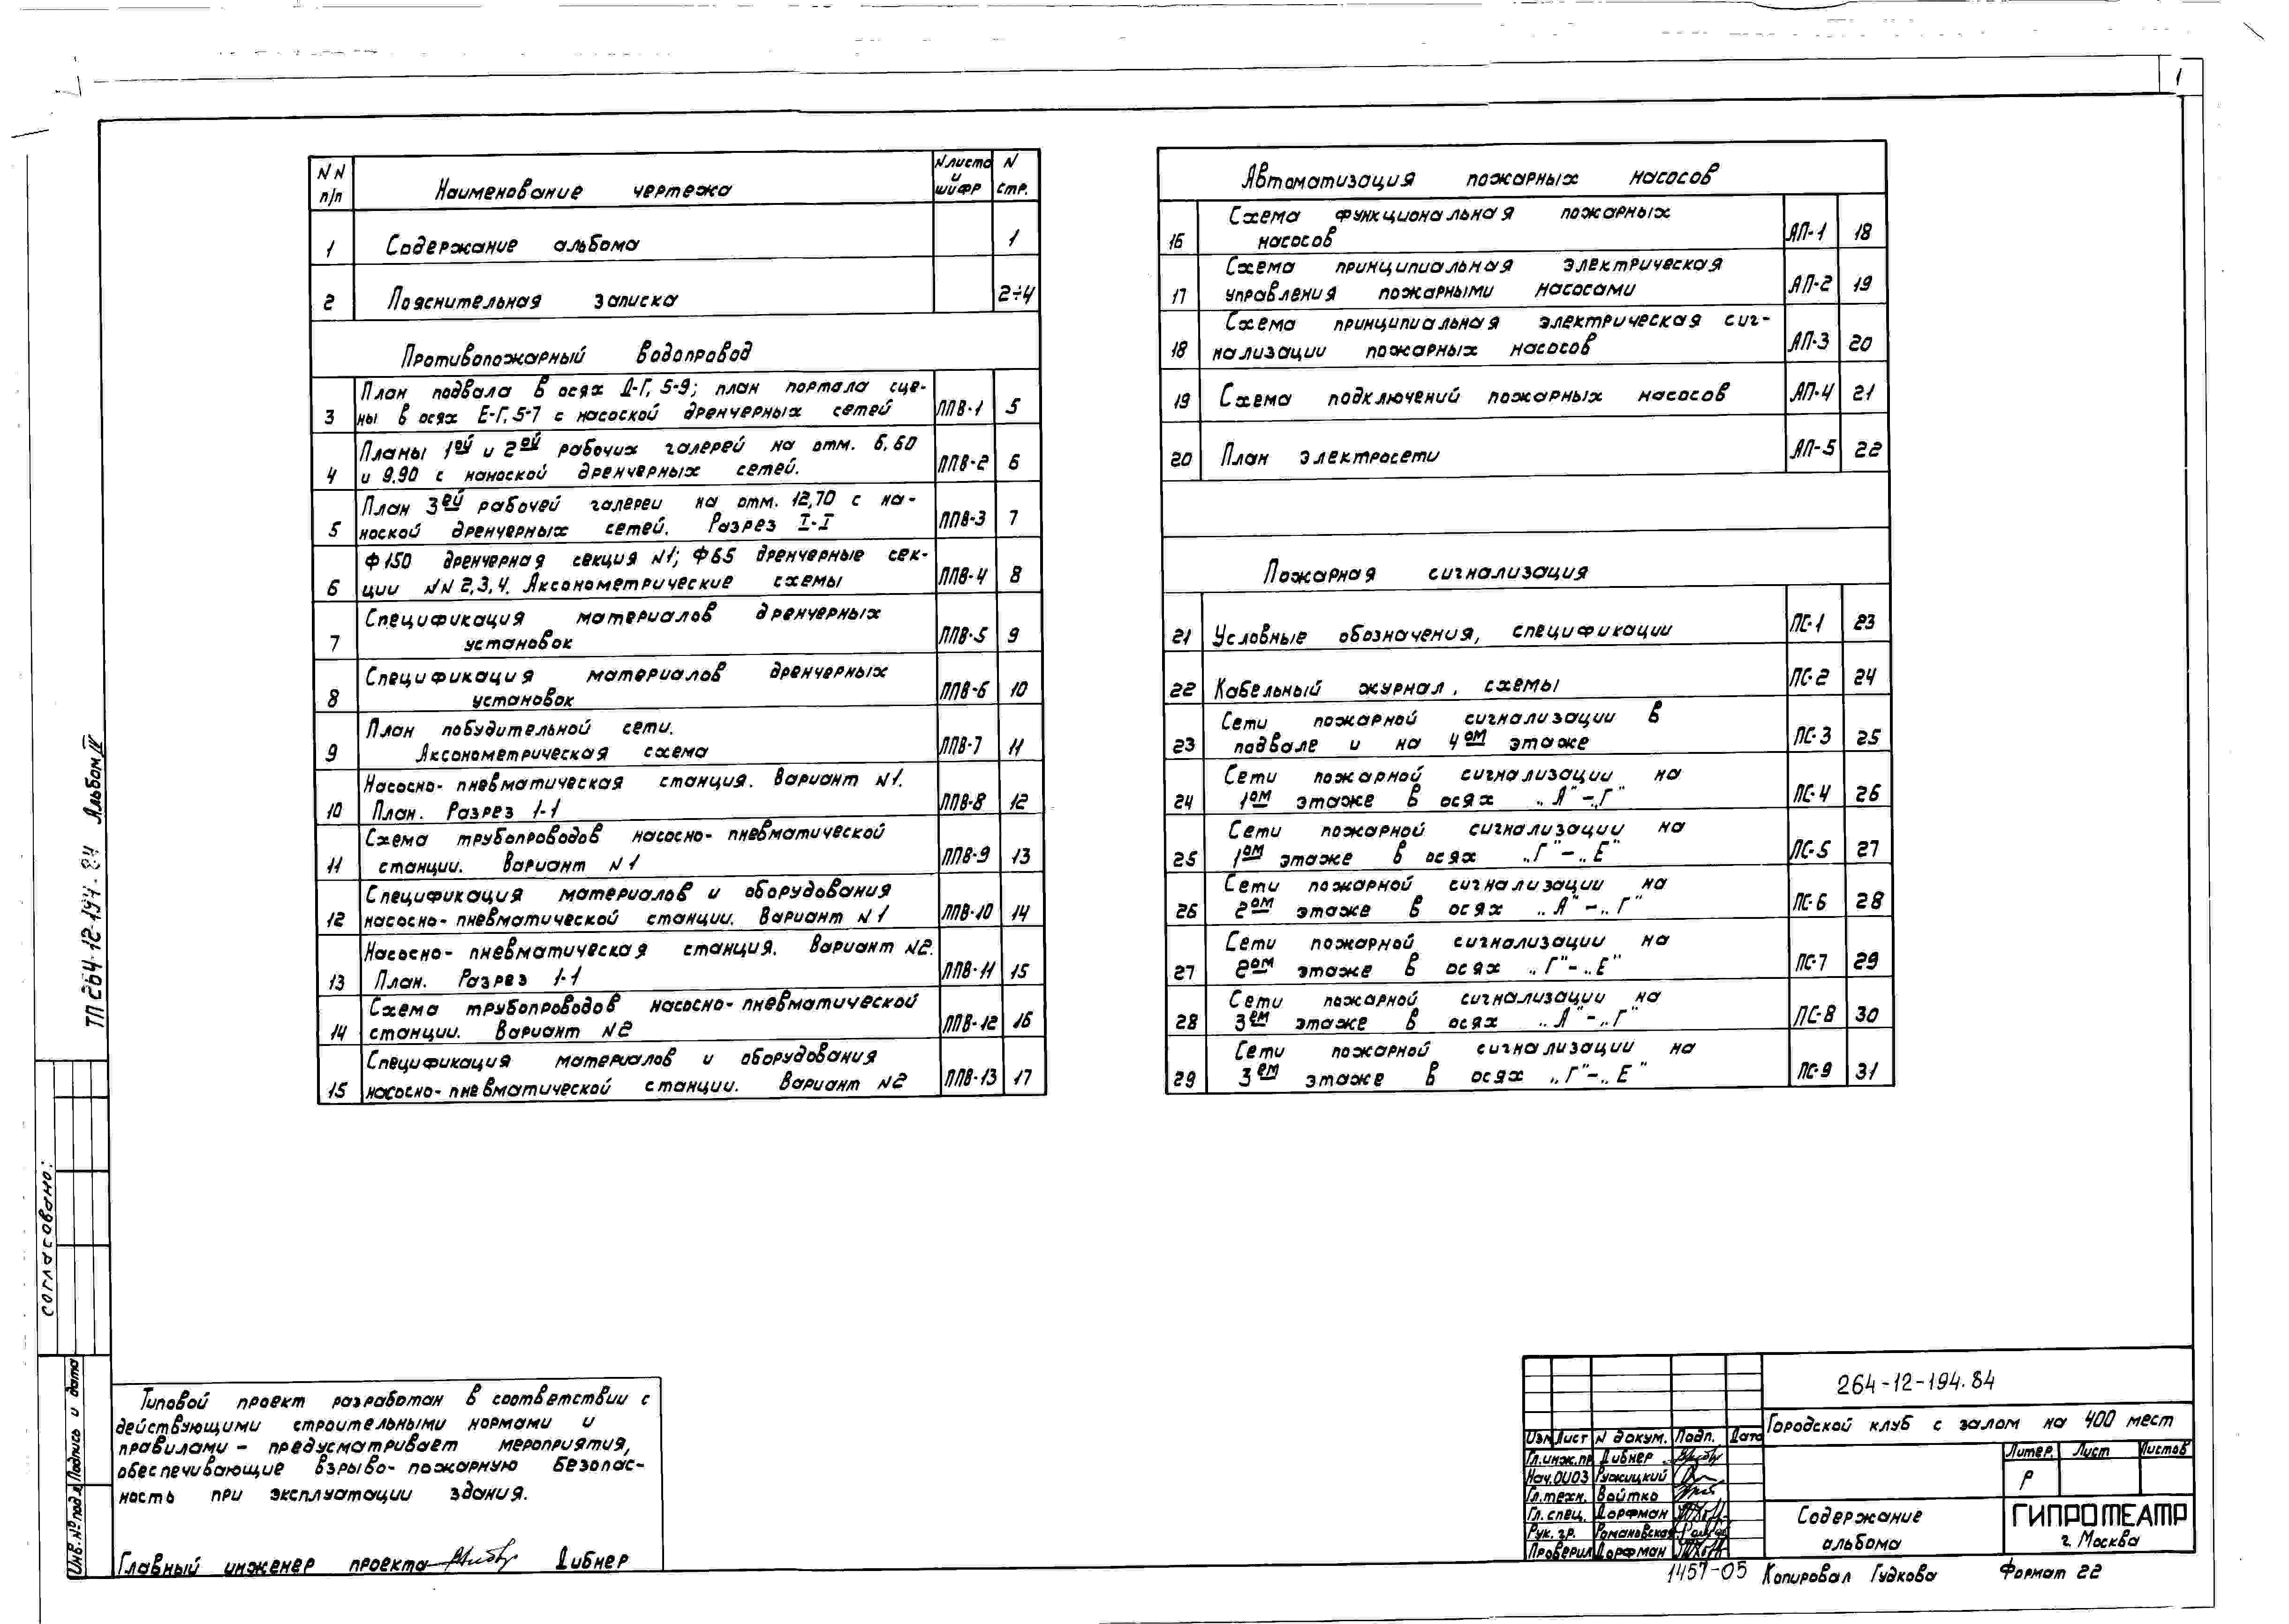 1
NN п/п Наименование чертежа N листа и шифр N стр.
1 Содержание альбома 1
2 Пояснительная записка 2÷4
Противопожарный водопровод
План подвала в осях Д-Г, 5-9; план портала сце-
3 ны в осях Е-Г, 5-7 с насоской дренчерных сетей ППВ-1 5
Планы 1ой и 2ой рабочих галерей на отм. 6.60
4 и 9.90 с наноской дренчерных сетей. ППВ-2 6
План 3ей рабочей галереи на отм. 12,70 с на-
5 ноской дренчерных сетей. Разрез I-I ППВ-3 7
Ф150 дренчерная секция N1; Ф65 дренчерные сек-
6 ции NN 2,3,4. Аксонометрические схемы ППВ-4 8
Спецификация материалов дренчерных
7 установок ППВ-5 9
Спецификация материалов дренчерных
8 установок ППВ-6 10
План побудительной сети.
9 Аксонометрическая схема ППВ-7 11
Насосно-пневматическая станция. Вариант N1.
10 План. Разрез 1-1 ППВ-8 12
Схема трубопроводов насосно-пневматической
11 станции. Вариант N1 ППВ-9 13
Спецификация материалов и оборудования
12 насосно-пневматической станции. Вариант N1 ППВ-10 14
Насосно-пневматическая станция. Вариант N2.
13 План. Разрез 1-1 ППВ-11 15
Схема трубопроводов насосно-пневматической
14 станции. Вариант N2 ППВ-12 16
Спецификация материалов и оборудования
15 насосно-пневматической станции. Вариант N2 ППВ-13 17
Автоматизация пожарных насосов
Схема функциональная пожарных
16 насосов АП-1 18
Схема принципиальная электрическая
17 управления пожарными насосами АП-2 19
Схема принципиальная электрическая сиг-
18 нализации пожарных насосов АП-3 20
19 Схема подключений пожарных насосов АП-4 21
20 План электросети АП-5 22
Пожарная сигнализация
21 Условные обозначения, спецификации ПС-1 23
22 Кабельный журнал, схемы ПС-2 24
Сети пожарной сигнализации в
23 подвале и на 4ом этаже ПС-3 25
Сети пожарной сигнализации на
24 1ом этаже в осях „А"-„Г" ПС-4 26
Сети пожарной сигнализации на
25 1ом этаже в осях „Г"-„Е" ПС-5 27
Сети пожарной сигнализации на
26 2ом этаже в осях „А"-„Г" ПС-6 28
Сети пожарной сигнализации на
27 2ом этаже в осях „Г"-„Е" ПС-7 29
Сети пожарной сигнализации на
28 3ем этаже в осях „А"-„Г" ПС-8 30
Сети пожарной сигнализации на
29 3ем этаже в осях „Г"-„Е" ПС-9 31
ТП 264-12-194.84 Альбом IV
согласовано:
Инв.№ подл. Подпись и дата
Типовой проект разработан в соответствии с
действующими строительными нормами и
правилами – предусматривает мероприятия,
обеспечивающие взрыво-пожарную безопас-
ность при эксплуатации здания.
Главный инженер проекта Дибнер
264-12-194.84
Городской клуб с залом на 400 мест
Изм Лист N докум. Подп. Дата
Гл.инж.пр Дибнер
Нач.ОИОЗ Ружицкий
Гл.техн. Войтко
Гл. спец. Дорфман
Рук. гр. Романовская
Проверил Дорфман
Литер. Лист Листов
Р
Содержание
альбома
ГИПРОТЕАТР
г. Москва
1457-05 Копировал Гудкова Формат 22